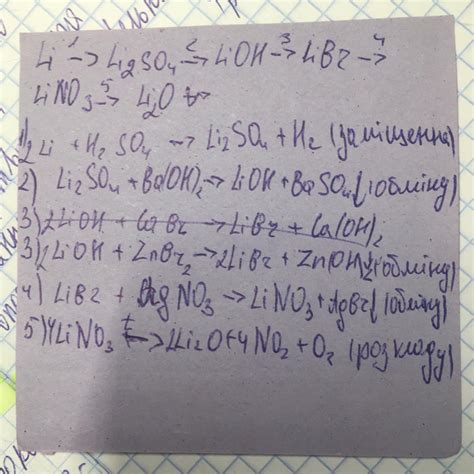 Li 1→ Li2SO4 2→ LiOH 3→ LiBr 4→
LiNO3 5→ Li2O
1) 2Li + H2SO4 → Li2SO4 + H2 (заміщення)
2) Li2SO4 + Ba(OH)2 → LiOH + BaSO4 (обміну)
3) 2LiOH + CaBr → LiBr + Ca(OH)2
3) 2LiOH + ZnBr2 → 2LiBr + Zn(OH)2 (обміну)
4) LiBr + AgNO3 → LiNO3 + AgBr (обміну)
5) 4LiNO3 t→ 2Li2O + 4NO2 + O2 (розкладу)